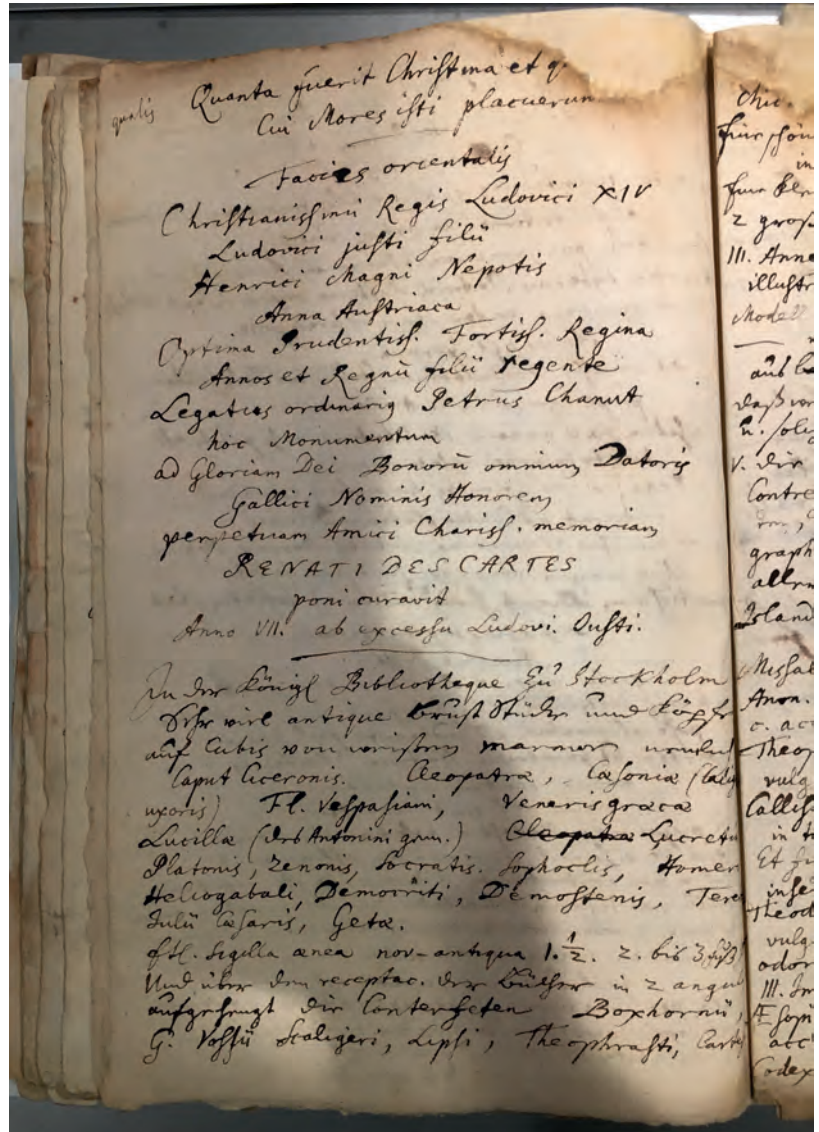 Quanta fuerit Christina et q
qualis
Cui Mores isti placuerun
Facies orientalis
Christianissimi Regis Ludovici XIV
Ludovici justi filii
Henrici Magni Nepotis
Anna Austriaca
Optima Prudentiss. Fortiss. Regina
Annos et Regnū filii regente
Legatus ordinariq Petrus Chanut
hoc Monumentum
ad Gloriam Dei Bonorū omnium Datoris
Gallici Nominis Honorem
perpetuam Amici Chariss. memoriam
RENATI DES CARTES
poni curavit
Anno VII. ab excessu Ludovi. Justi.
In der Königl Bibliotheque zu Stockholm
Sehr viel antique Brust Stücke und Köpfe
auf Cubis von weißem marmor
Caput Ciceronis. Cleopatræ, Cæsoniæ (Calig
uxoris) Fl. Vespasiani, Veneris græcæ
Lucillæ (des Antonini gem.) Cleopatræ Lucretiæ
Platonis, Zenonis, Socratis. Sophoclis, Homer
Heliogabali, Democriti, Demostenis, Tere
Julii Cæsaris, Getæ.
etl. sigilla ænea nov-antiqua 1. ½. 2. bis 3 fuß
Und über den receptac. der Bücher in 2 angul
aufgehengt die Conterfeten Boxhornii,
G. Vossii Scaligeri, Lipsi, Theophrasti, Cartes
in
2 groß
III. Anne
illustr
Modell
aus
daß
Contre
graph
allem
Island
Missal
Anon.
c. acc
Theop
vulg
Callis
in
Et
inse
Theod
vulg
odor
III. Im
Æsopi
acc
Codex